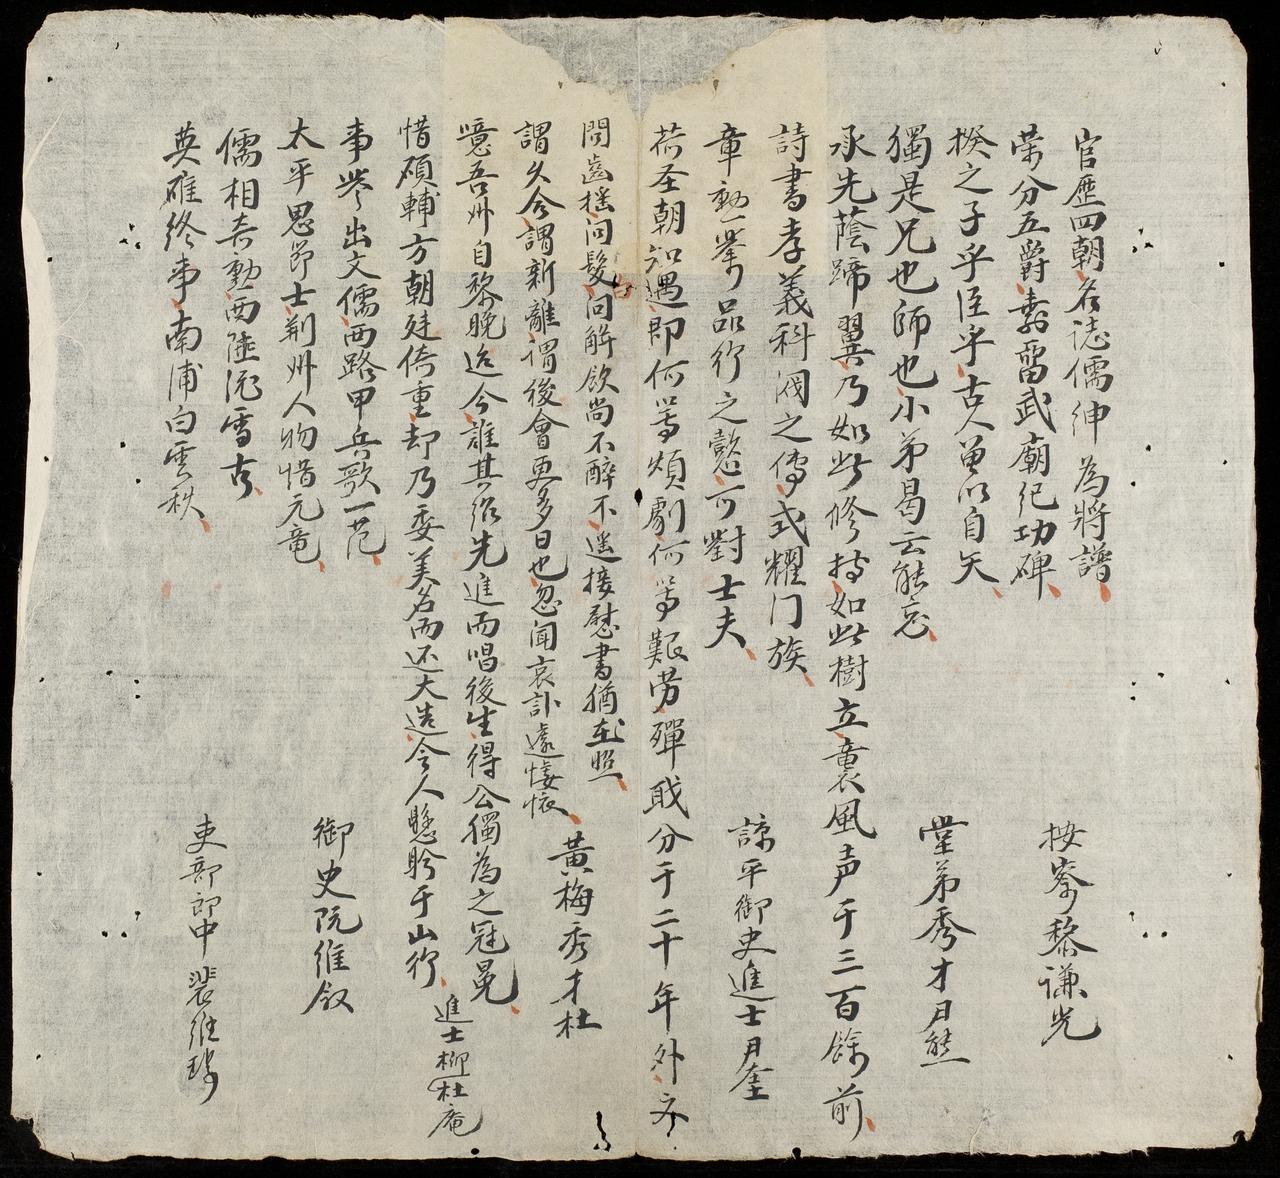 官歷四朝名誌儒紳為將譜
榮分五爵書留武廟紀功碑
按察黎謙光
揆之子乎臣乎古人曾以自矢
獨是兄也師也小弟曷云能忘
堂弟秀才月熊
承先蔭蹄翼乃如此修持如此樹立童裏風声于三百餘前
詩書孝義科閥之傳式耀门族
章勳舉品行之懿可對士夫
諒平御史進士月奎
荷圣朝知遇即何等煩劇何等艱劳殫戝分于二十年外
問齒搖问髮问解飲尚不醉不遥接慰書猶在照
謂久今謂新離謂後會更多日也忽闻哀訃遽悽懷
黃梅秀才杜
噫吾州自黎晚迄今誰其紹先進而唱後生得公獨為之冠冕
惜碩輔方朝廷倚重却乃委美名而还大造令人懸盻于山行
進士柳杜庵
事業出文儒西路甲兵歌一范
太平思節士荊州人物惜元竜
御史阮維叙
儒相奇勳西陸泥雪古
英雄終事南浦白雲秋
吏部郎中裴維